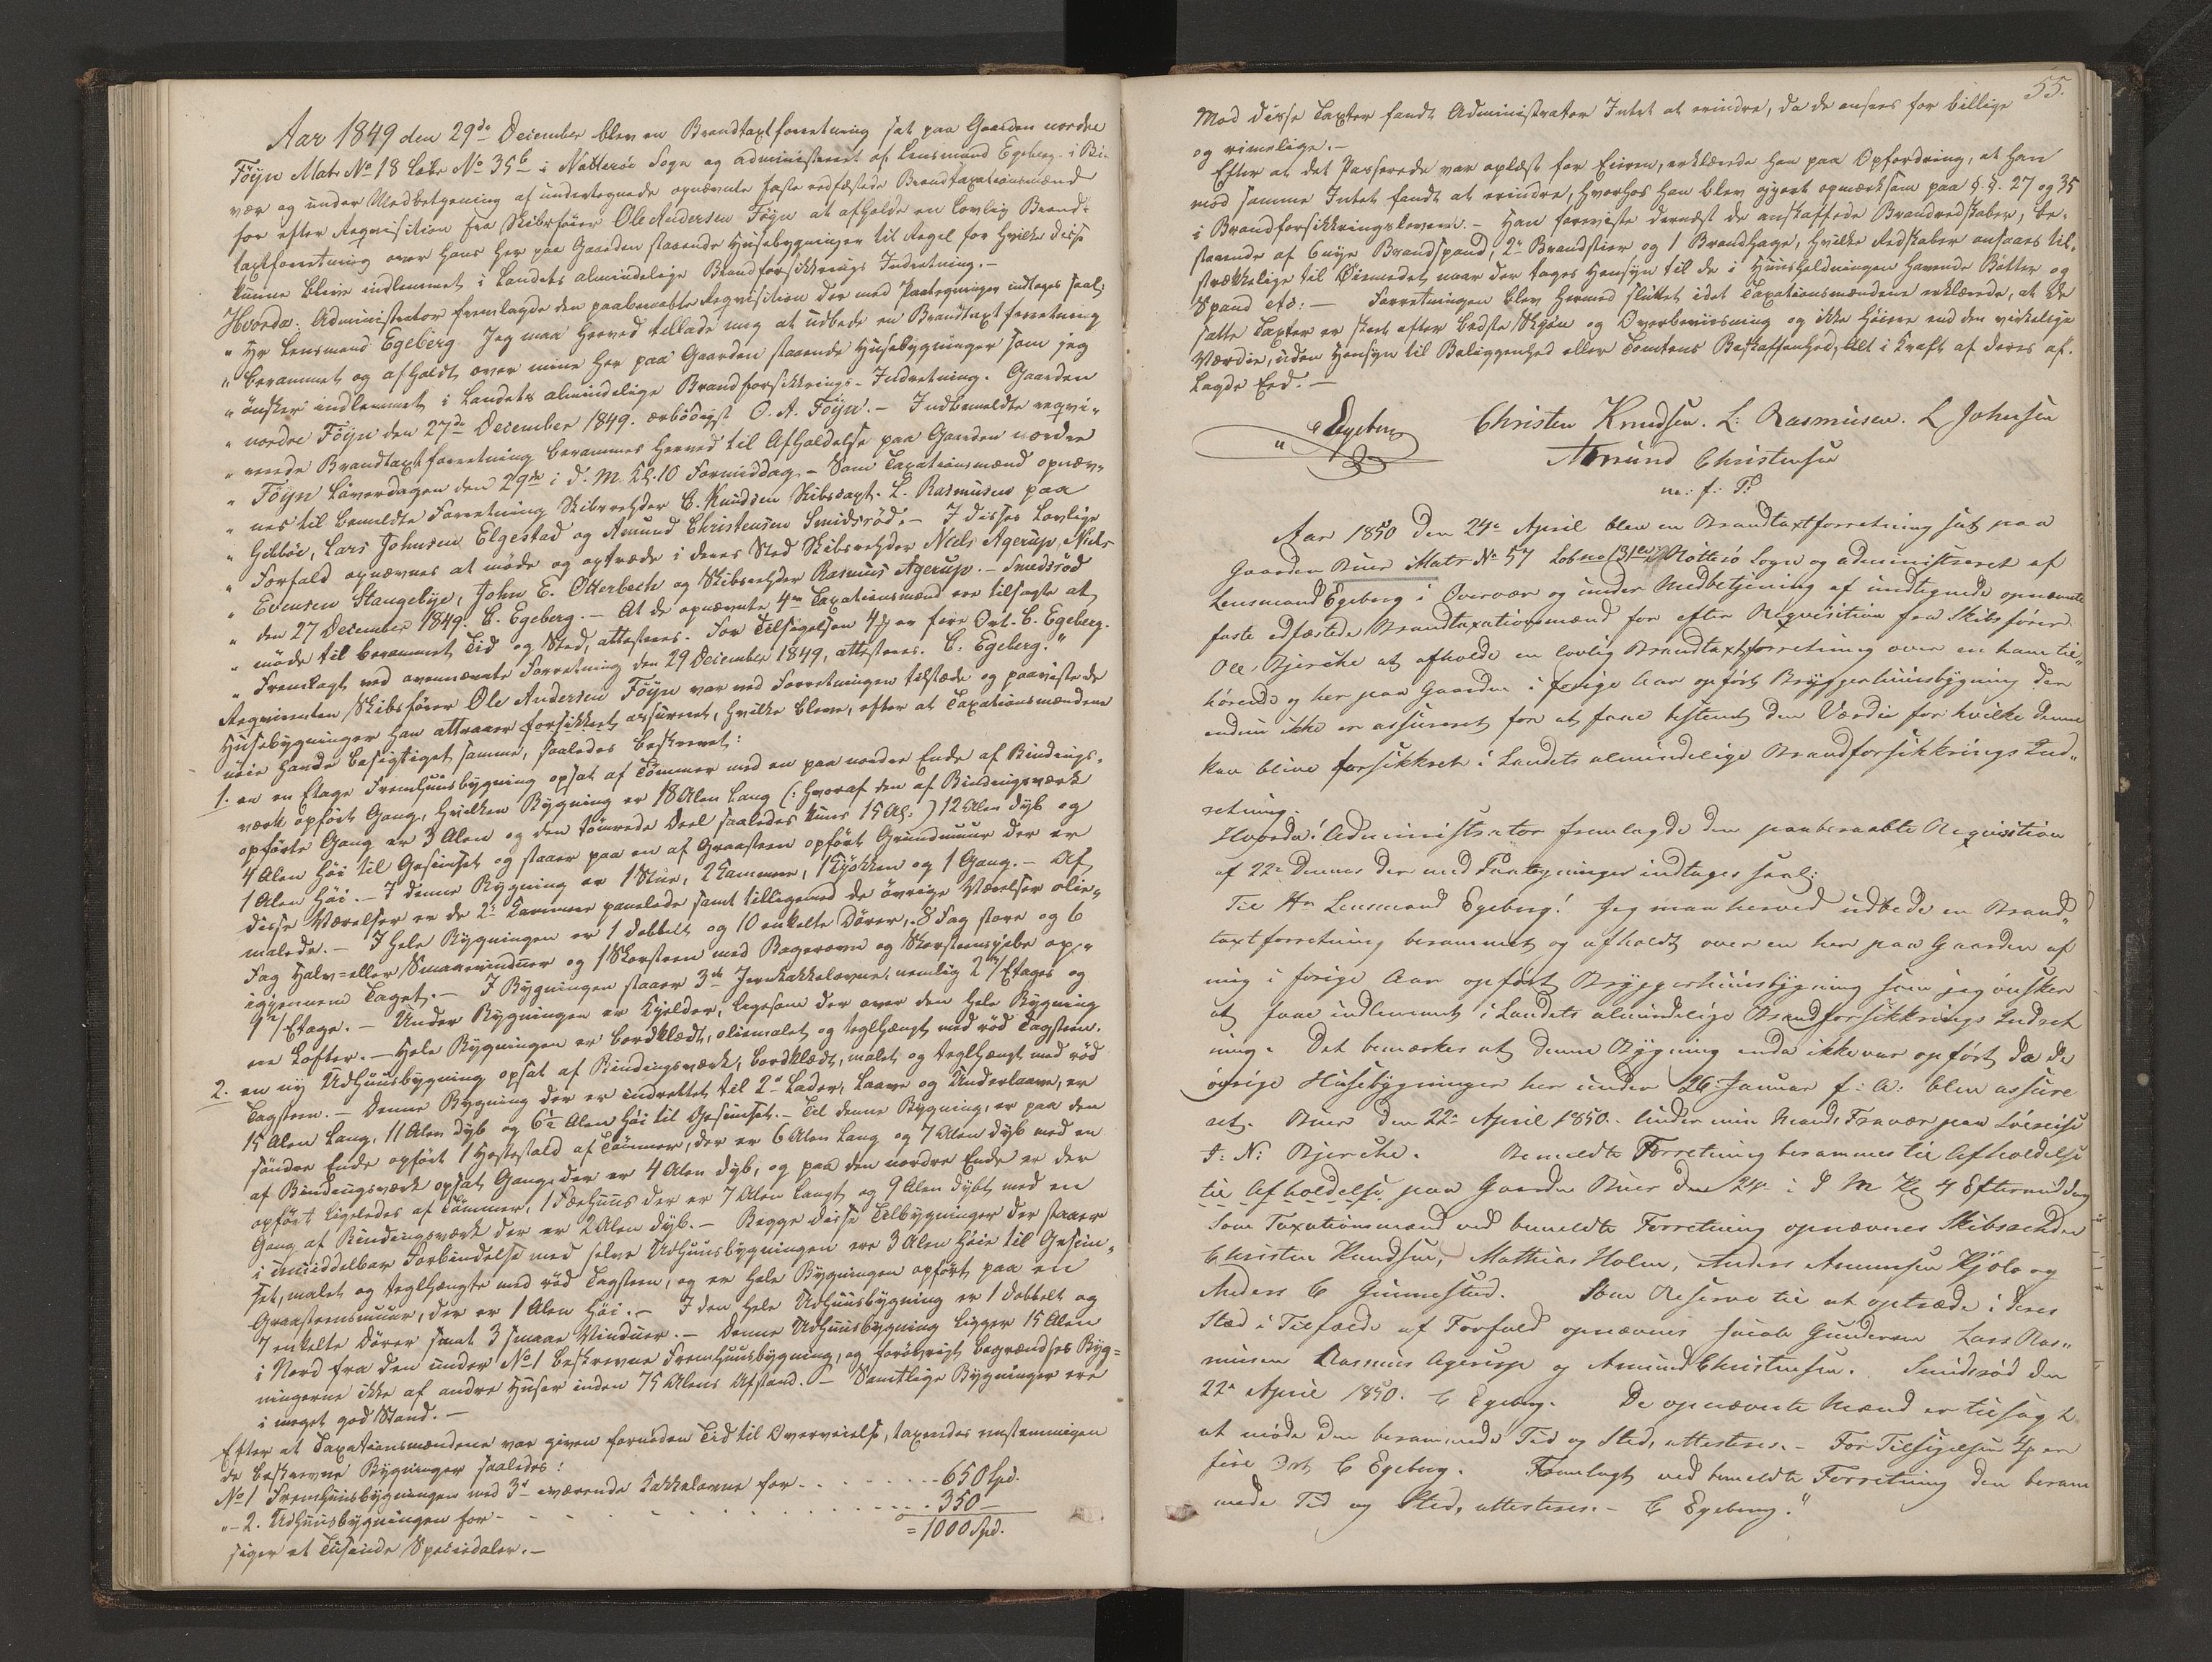 Aar 1849 den 29de December blev en Brandtaxtforretning sat paa Gaarden nordre
Föyn Matr No 18 Løbe No 35b i Nötterøe Sogn og administreret af Lensmand Egeberg i Over-
vær og under Medbetjening af undertegnede opnævnte faste edfæstede Brandtaxationsmænd
for efter Reqvisition fra Skibsfører Ole Andersen Föyn at afholde en lovlig Brand-
taxtforretning over hans her paa Gaarden staaende Huusebygninger til Regel for hvilke disse
kunne blive indlemmet i Landets almindelige Brandforsikkrings Indretning.-
Hvorda: Administrator fremlagde den paaberaabte Reqvisition der med Paategninger indtages saal:
" Hr Lensmand Egeberg Jeg maa herved tillade mig at udbede en Brandtaxtforretning
" berammet og afholdt over mine her paa Gaarden staaende Huusebygninger som jeg
" ønsker indlemmet i Landets almindelige Brandforsikkrings-Indretning. Gaarden
" nordre Föyn den 27de December 1849. ærbödigst O. A. Föyn.- Indbemeldte reqvi-
" rerede Brandtaxtforretning berammes herved til Afholdelse paa Gaarden nordre
" Föyn Løverdagen den 29de i d. M. Kl. 10 Formiddag.- Som Taxationsmænd opnæv-
" nes til bemeldte Forretning Skibsrehder C. Knudsen Skibscapt. L. Rasmusen paa
" Gibböe, Lars Johnsen Elgestad og Amund Christensen Smidsröd.- I disses lovlige
" Forfald opnævnes at møde og optræde i deres Sted Skibsrehder Niels Agerup, Niels
" Evensen Stangebÿe, John E. Otterbech og Skibsrehder Rasmus Agerup.- Smidsröd
" den 27 December 1849. C. Egeberg.- At de opnævnte 4re Taxationsmænd ere tilsagte at
" møde til berammet Tid og Sted, attesteres. For Tilsigelsen 4 er fire Ort. C. Egeberg.
" Fremlagt ved ovennævnte Forretning den 29 December 1849, attesteres. C. Egeberg."
Reqvirenten Skibsfører Ole Andersen Föyn var ved Forretningen tilstæde og paaviste de
Huusebygninger han attraaer forsikkret assureret, hvilke bleve, efter at Taxationsmændene
nöie havde besigtiget samme, saaledes beskrevet:
1. en en Etages Fremhuusbygning opsat af Tömmer med en paa nordre Ende af Bindings-
værk opfört Gang, hvilken Bygning er 18 Alen lang (: hvoraf den af Bindingsværk
opförte Gang er 3 Alen og den tömrede Deel saaledes kuns 15 Al:) 12 Alen dyb og
4 Alen høi til Gesimset og staaer paa en af Graasteen opfört Grundmuur der er
1 Alen høi.- I denne Bygning er 1 Stue, 2 Kammere, 1 Kjökken og 1 Gang.- Af
disse Værelser er de 2de Kammere panelede samt tilligemed de övrige Værelser olie-
malede.- I hele Bygningen er 1 dobbelt og 10 enkelte Dörer, 8 Fag store og 6
Fag halv- eller Smaavinduer og 1 Skorsteen med Bagerovn og Skorsteenspibe op-
igjennem Taget.- I Bygningen staaer 3de Jernkakkelovne, nemlig 2de 1/Etages og
1 2/Etage.- Under Bygningen er Kjelder, ligesom der over den hele Bygning
ere Lofter.- Hele Bygningen er bordklædt, oliemalet og teglhængt med röd Tagsteen.
2. en ny Udhuusbygning opsat af Bindingsværk, bordklædt, malet og teglhængt med röd
Tagsteen.- Denne Bygning der er indrettet til 2de Lader, Laave og Underlaave, er
15 Alen lang, 11 Alen dyb og 6½ Alen høi til Gesimset.- Til denne Bygning, er paa den
söndre Ende opfört 1 Hestestald af Tömmer, der er 6 Alen lang og 7 Alen dyb med en
af Bindingsværk opsat Gang der er 4 Alen dyb, og paa den nordre Ende er der
opfört ligeledes af Tömmer, 1 Fæehuus der er 7 Alen langt og 9 Alen dybt med en
Gang af Bindingsværk der er 2 Alen dyb.- Begge disse Tilbygninger der staaer
i umiddelbar Forbindelse med selve Udhuusbygningen ere 3 Alen høie til Gesim-
set, malet og teglhængte med röd Tagsteen, og er hele Bygningen opfört paa en
Graasteensmuur, der er 1 Alen høi.- I den hele Udhuusbygning er 1 dobbelt og
7 enkelte Dörer samt 3 smaae Vinduer.- Denne Udhuusbygning ligger 15 Alen
i Nord fra den under No 1 beskrevne Fremhuusbygning, og forövrigt begrændses Byg-
ningerne ikke af andre Huse inden 75 Alens Afstand.- Samtlige Bygninger ere
i meget god Stand.-
Efter at Taxationsmændene var given fornöden Tid til Overveielse, taxeredes eenstemmigen
de beskrevne Bygninger saaledes:
No 1 Fremhuusbygningen med 3de iværende Kakkelovne for - - - - 650 Spd.
" - 2. Udhuusbygningen for - - - - 350 -
= 1000 Spd.
siger et Tusinde Speciedaler.-
55.
Mod disse Taxter fandt Administrator Intet at erindre, da de ansees for billige
og rimelige.-
Efter at det Passerede var oplæst for Eieren, erklærede han paa Opfordring, at han
mod samme Intet fandt at erindre, hvorhos han blev gjort opmærksom paa §.§. 27 og 35
i Brandforsikkringsloven.- Han foreviste dernæst de anskaffede Brandredskaber, be-
staaende af 6 nye Brandspand, 2de Brandstier og 1 Brandhage, hvilke Redskaber ansaaes til-
strækkelige til Øiemedet, naar der tages Hensyn til de i Huusholdningen havende Bötter og
Spand etc.- Forretningen blev hermed sluttet idet Taxationsmændene erklærede, at de
satte Taxter er skeet efter bedste Skjøn og Overbeviisning og ikke høiere end den virkelige
Værdie, uden Hensyn til Beliggenhed eller Tomtens Beskaffenhed, Alt i Kraft af deres af-
lagde Eed.-
C Egeberg Christen Knudsen. L: Rasmusen. L Johnsen
Amund Christensen
m: f: P:
Aar 1850 den 24de April blev en Brandtaxtforretning sat paa
Gaarden Buer Matr No 57 Lobno 131 i Nötterö Sogn og administreret af
Lensmand Egeberg i Overvær og under Medbetjening af undtegnede opnævnte
faste edfæstede Brandtaxationsmænd for efter Reqvisition fra Skibsförer
Ole Bjerche at afholde en lovlig Brandtaxtforretning over en ham til-
hörende og her paa Gaarden i forige Aar opfört Bryggerhuusbygning der
endnu ikke er assureret for at faae bestemt den Værdie for hvilke denne
kan blive forsikkret i Landets almindelige Brandforsikkrings Ind-
retning.
Hvorda! Administrator fremlagde den paaberaabte Reqvisition
af 22de Dennes der med Paategninger indtages saal:
Til Hr Lensmand Egeberg! Jeg maa herved udbede en Brand-
taxtforretning berammet og afholdt over en her paa Gaarden af
mig i forige Aar opfört Bryggerhuusbygning som jeg önsker
at faae indlemmet i Landets almindelige Brandforsikkrings Indret
ning. Det bemærkes at denne Bygning enda ikke var opfört da de
övrige Husebygninger her under 26 Januar f: A: blev assure
ret. Buer den 22de April 1850. Under min Mands Fravær paa Söereise
J: N: Bjerche. Bemeldte Forretning berammes til Afholdelse
til Afholdelse paa Gaarden Buer den 24de i d M Kl 4 Eftermiddag
Som Taxationsmænd ved bemeldte Forretning opnævnes Skibsrehder
Christen Knudsen, Mathias Holm, Anders Amunsen Kjöle og
Anders C Gunnestad. Som Reserve til at optræde i deres
Stæd i Tilfælde af Forfald opnævnes Jacob Gundersen Lars Ras-
musen Rasmus Agerup og Amund Christensen. Smidsröd den
22de April 1850. C Egeberg. De opnævnte Mænd er tilsagt
at möde den berammede Tid og Sted, attesteres.- For Tilsigelsen 4 er
fire Ort C Egeberg. Fremlagt ved bemeldte Forretning den beram
mede Tid og Sted, attesteres.- C Egeberg."